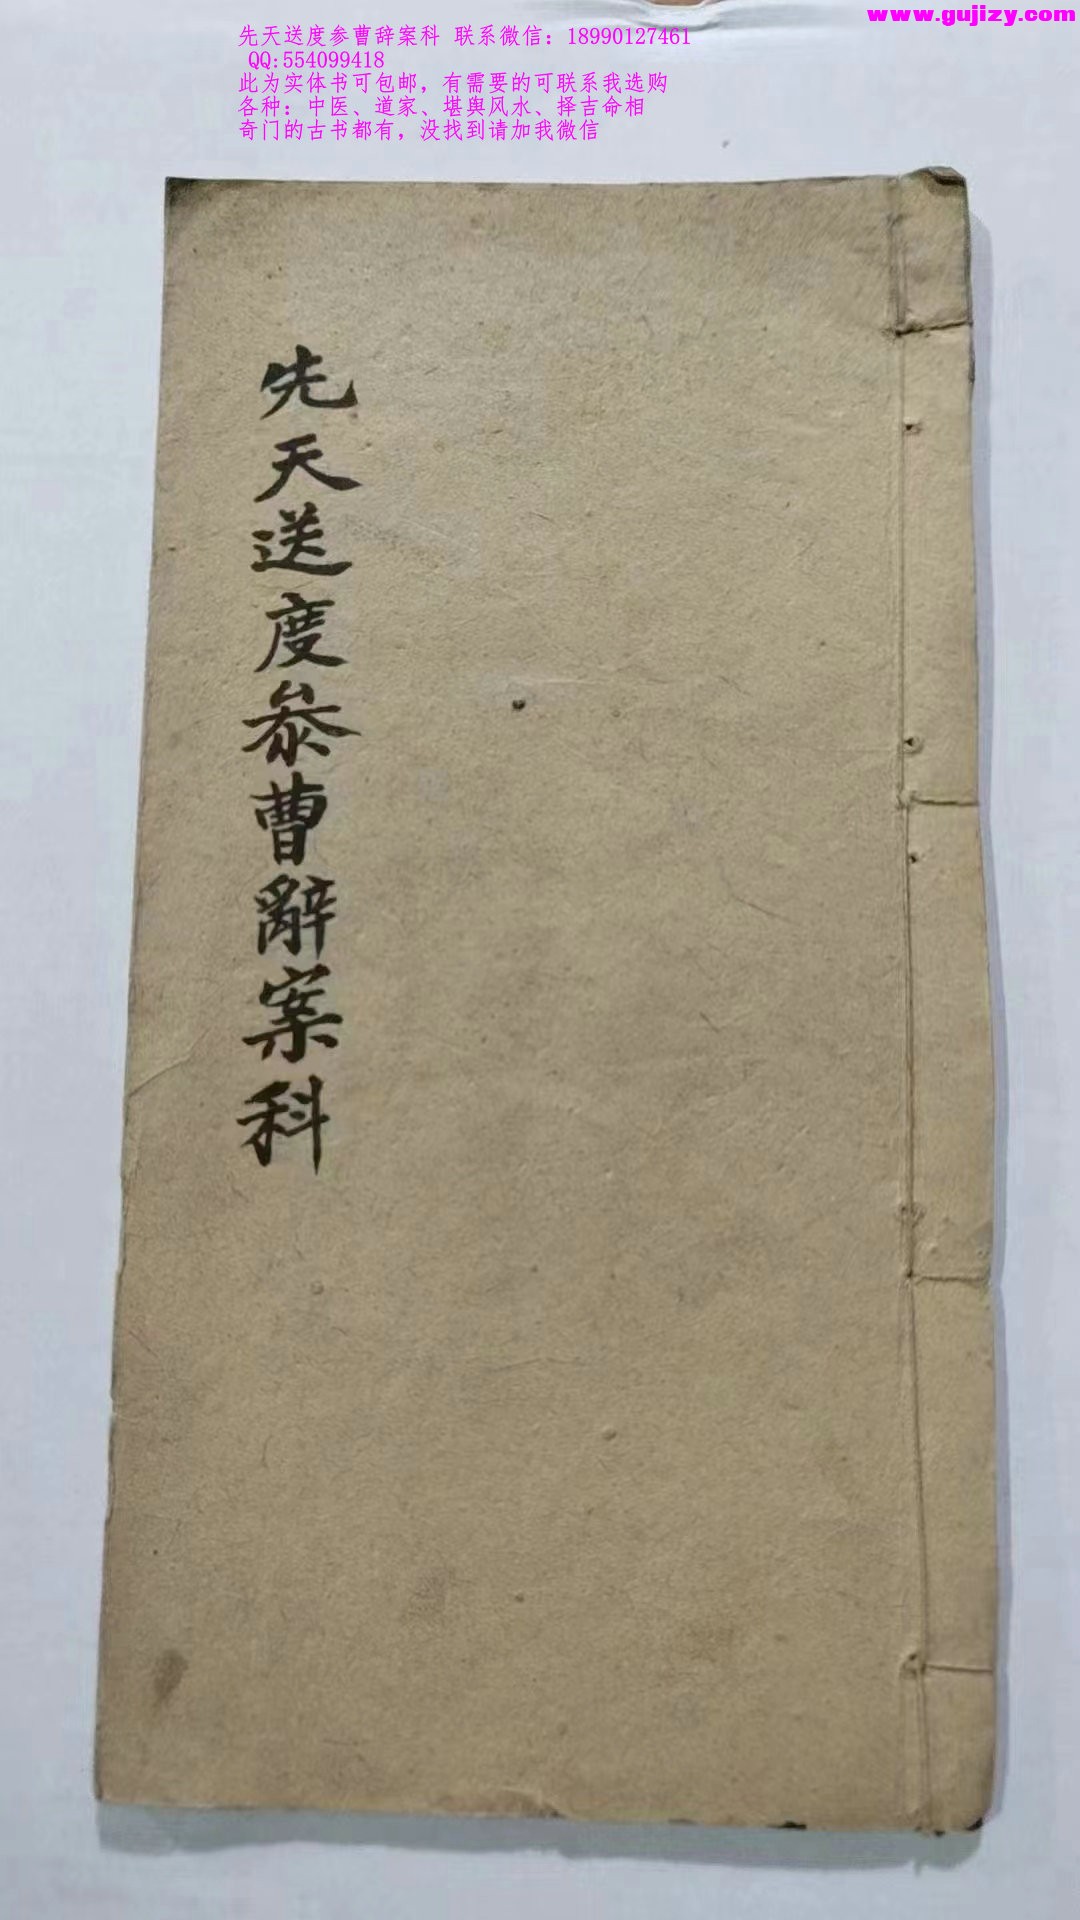 www.gujizy.com
先天送度参曹辞案科 联系微信：18990127461
QQ:554099418
此为实体书可包邮，有需要的可联系我选购
各种：中医、道家、堪舆风水、择吉命相
奇门的古书都有，没找到请加我微信
先天送度叅曹辭案科